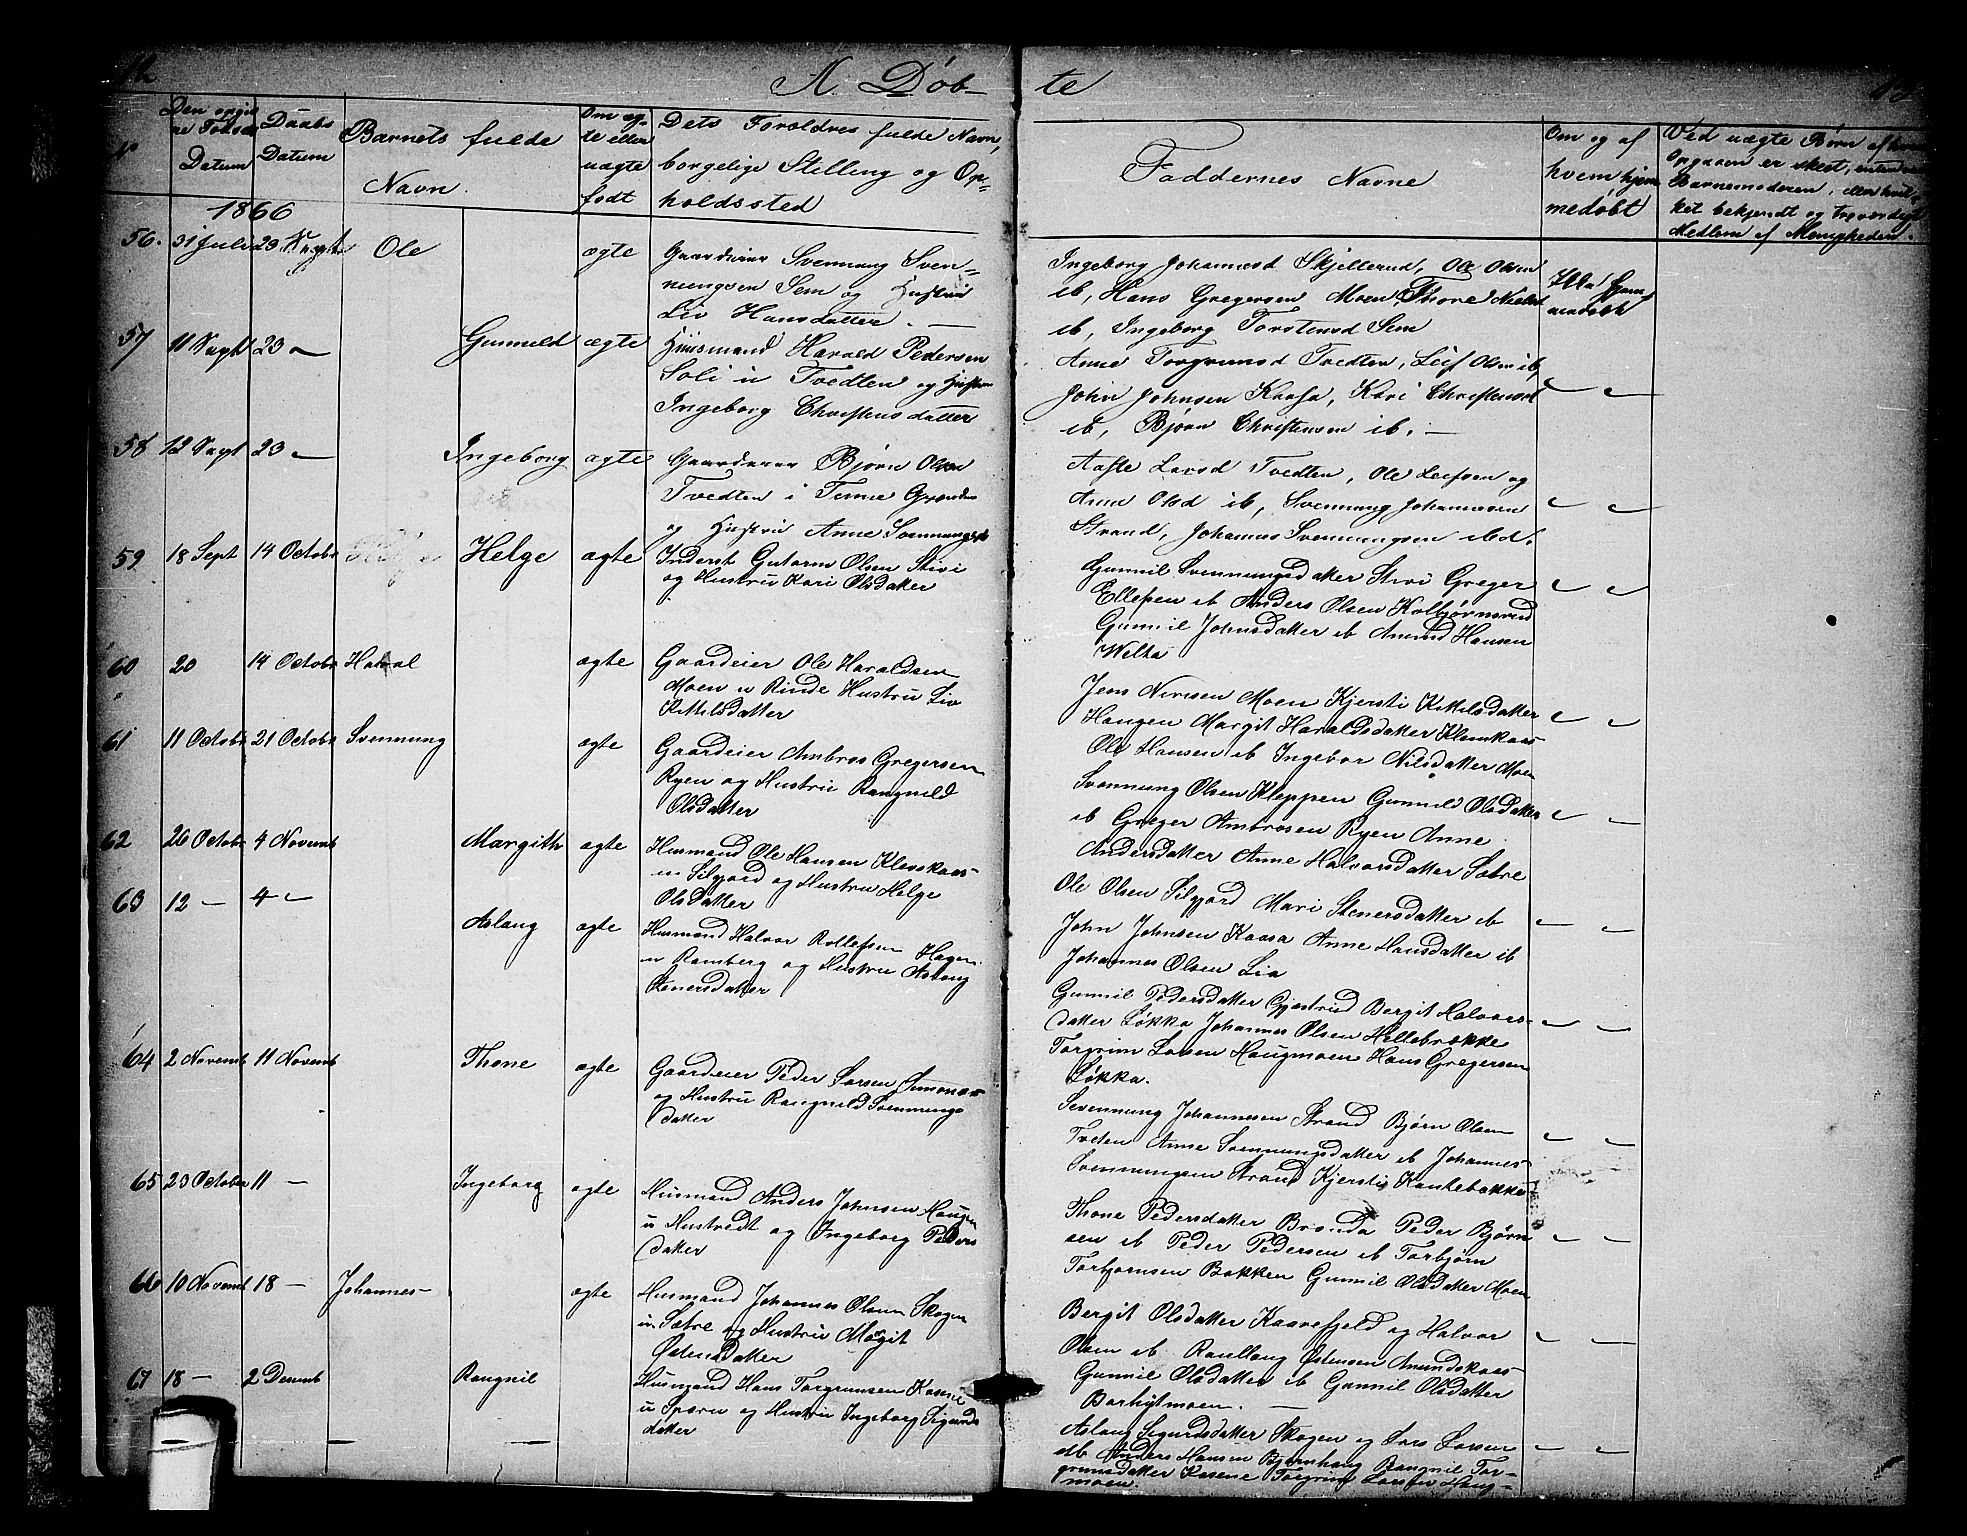 12
A. Døb-
te
13
N
Den opgiv
ne Fødsels
Datum
Daabs
Datum
Barnets fulde
Navn.
Om æg-
te eller
uægte
født
Dets Foreldres fulde Navn,
borgelige Stilling og Op-
holdssted
Faddernes Navne
Om og af
hvem hjem
medøbt
Ved uægte Børn af hvem
Opgaven er skeet, enten
Barnemoderen, eller hvil-
ket bekjendt og troverdigt
Medlem af Menigheden.
1866
56. 31 Juli 23 Sept Ole ægte
Gaardeier Svennung Sven-
nungsen Sem og Hustru
Liv Hansdatter. —
Ingeborg Johannesd Skjelterud, Ole Olsen
ib, Hans Gregersen Moen, Thore Nielsd
ib, Ingeborg Torstensd Sem
Ikke hjem
medøbt
57 11 Sept 23 — Gunnild ægte
Huusmand Harald Pedersen
Soli u Tvedten og Hustru
Ingeborg Christensdatter
Anne Torgrimsd Tvedten, Leif Olsen ib,
John Johnsen Kaasa, Kari Christensd
ib, Bjørn Christensen ib. —
58 12 Sept 23 — Ingeborg ægte
Gaardeier Bjørn Olsen
Tvedten i Tinne Grænden
og Hustru Anne Svennungsd
Aaste Larsd Tvedten, Ole Leifsen og
Anne Olsd ib, Svennung Johannesen
Strand, Johannes Svennungsen ibd.
59 18 Sept 14 Octobr Helge ægte
Inderst Gutorm Olsen Stivi
og Hustru Kari Olsdatter
Gunnil Svennungsdatter Stivi Greger
Ellefsen ib Anders Olsen Kolbjørnsrud
Gunnil Johnsdatter ib Amund Hansen
Welta
60 20 14 Octobr Halvol ægte
Gaardeier Ole Haraldsen
Moen u Rinde Hustru Liv
Kittelsdatter
Jens Nirisen Moen Kjersti Kittilsdatter
Haugen Margit Haraldsdatter Kleivkaas
Ole Hansen ib Ingebor Nilsdatter Moen
61 11 Octobr 21 Octobr Svennung ægte
Gaardeier Ambros Gregersen
Ryen og Hustru Rangnild
Olsdatter
Svennung Olsen Kleppen Gunnil Olsdatter
ib Greger Ambrosen Ryen Anne
Andersdatter Anne Halvorsdatter Sætre
62 26 Octobr 4 Novemb Margith ægte
Husmand Ole Hansen Kleivkaas-
u Seljord og Hustru Helge
Olsdatter
Ole Olsen Seljord Mari Stenersdatter ib
John Johnsen Kaasa Anne Hansdatter ib
Johannes Olsen Lia
63 12 — 4 — Aslaug ægte
Husmand Halvor Rollefsen Hagen
u Ramberg og Hustru Aslaug
Stenersdatter
Gunnil Pedersdatter Gjøstrud Bergit Halvors-
datter Løkka Johannes Olsen Hellebrække
Torgrim Larsen Haugmoen Hans Gregersen
Løkka.
64 2 Novemb 11 Novemb Thone ægte
Gaardeier Peder Larsen Simonæs
og Hustru Rangnild Svennungs
datter
Svennung Johannesen Strand Bjørn Olsen
Tveten Anne Svennungsdatter ib Johannes
Svennungsen Strand Kjersti Kankebakke
65 23 October 11 — Ingeborg ægte
Husmand Anders Johnsen Haugen
u Hustvedt og Ingeborg Peders
datter
Thone Pedersdatter Bronda Peder Bjørn
sen ib Peder Pedersen ib Torbjørn
Torbjørnsen Bakken Gunnil Olsdatter Moen
66 10 Novemb 18 — Johannes ægte
Husmand Johannes Olsen Skogen
u Sætre og Hustru Margit
Østensdatter
Bergit Olsdatter Kaavefjeld og Halvor
Olsen ib Rasllaug Østensen Amundskaas
Gunnil Olsdatter ib Gunnil Olsdatter
Borhytmoen. —
67 18 — 2 Decemb Rangnil
Husmand Hans Torgrimsen Kasene
u Sparu og Hustru Ingeborg Sigurds
datter
Aslaug Sigurdsdatter Skogen og Lars Larsen
ib Anders Hansen Bjørnhaug Rangnil Tor-
grimsdatter Kasene Torgrim Larsen Haug-
moen.